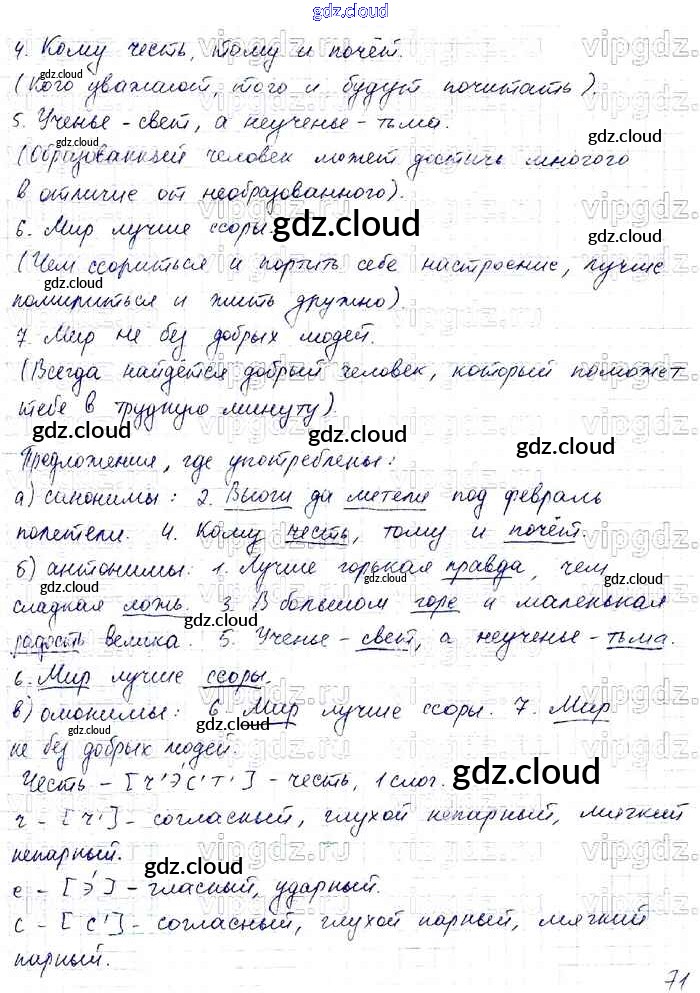 gdz.cloud
4. Кому честь, тому и почёт.
(Кого уважают, того и будут почитать).
5. Ученье - свет, а неученье - тьма.
(Образованный человек может достичь многого
в отличие от необразованного).
6. Мир лучше ссоры.
(Чем ссориться и портить себе настроение, лучше
помириться и жить дружно).
7. Мир не без добрых людей.
(Всегда найдётся добрый человек, который поможет
тебе в трудную минуту).
Предложения, где употреблены:
а) синонимы: 2. Вьюги да метели под февраль
полетели. 4. Кому честь, тому и почёт.
б) антонимы: 1. Лучше горькая правда, чем
сладкая ложь. 3. В большом горе и маленькая
радость велика. 5. Ученье - свет, а неученье - тьма.
6. Мир лучше ссоры.
в) омонимы: 6. Мир лучше ссоры. 7. Мир
не без добрых людей.
Честь - [ч'э́с'т'] - честь, 1 слог.
ч - [ч'] - согласный, глухой непарный, мягкий
непарный.
е - [э́] - гласный, ударный.
с - [с'] - согласный, глухой парный, мягкий
парный.
71